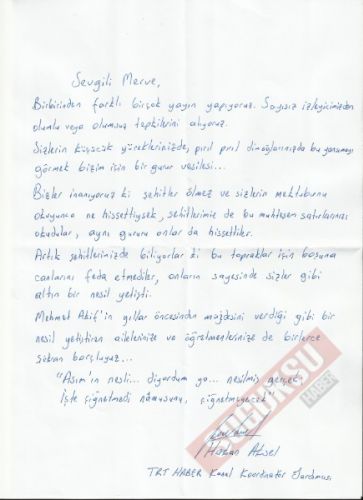 Sevgili Merve,
Birbirinden farklı birçok yayın yapıyoruz. Sayısız izleyicimizden
olumlu veya olumsuz tepkilerini alıyoruz.
Sizlerin küçücük yüreklerinizde, pırıl pırıl dimağlarınızda bu yansımayı
görmek bizim için bir gurur vesilesi...
Bizler inanıyoruz ki şehitler ölmez ve sizlerin mektubunu
okuyunca ne hissettiysek, şehitlerimiz de bu muhteşem satırlarınızı
okudular, aynı gururu onlar da hissettiler.
Artık şehitlerimizde biliyorlar ki bu topraklar için boşuna
canlarını feda etmediler, onların sayesinde sizler gibi
altın bir nesil yetişti.
Mehmet Akif'in yıllar öncesinden müjdesini verdiği gibi bir
nesil yetiştiren ailelerinize ve öğretmenlerinize de binlerce
şükran borçluyuz...
"Asım'ın nesli... diyordum ya... nesilmiş gerçek,
İşte çiğnetmedi namusunu, çiğnetmeyecek"
Hasan Aksel
TRT HABER Kanal Koordinatör Yardımcısı
HABER